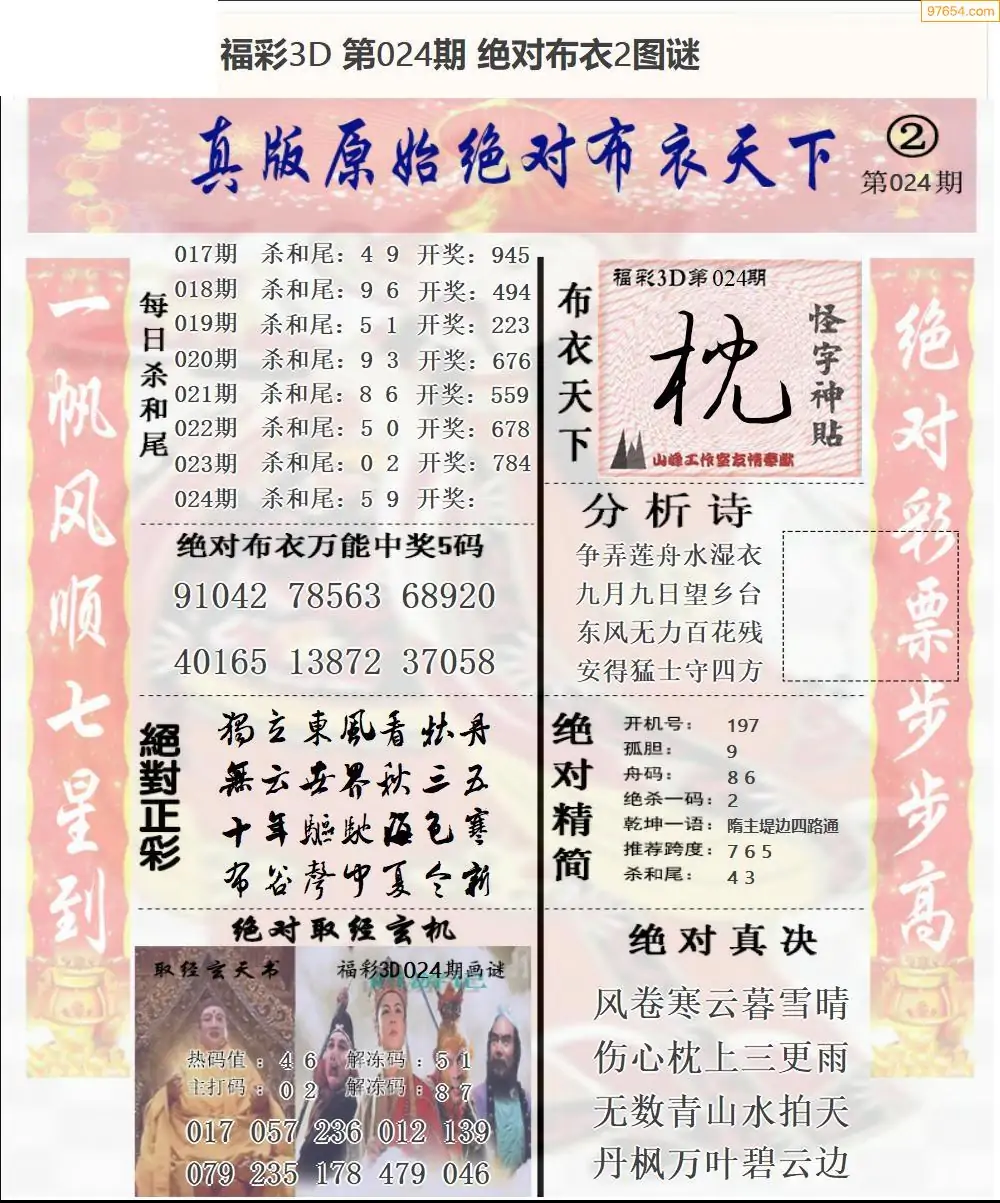 97654.com
福彩3D 第024期 绝对布衣2图谜
真版原始绝对布衣天下
②
第024期
一帆风顺七星到
每日杀和尾
017期 杀和尾：4 9 开奖：945
018期 杀和尾：9 6 开奖：494
019期 杀和尾：5 1 开奖：223
020期 杀和尾：9 3 开奖：676
021期 杀和尾：8 6 开奖：559
022期 杀和尾：5 0 开奖：678
023期 杀和尾：0 2 开奖：784
024期 杀和尾：5 9 开奖：
绝对布衣万能中奖5码
91042 78563 68920
40165 13872 37058
布衣天下
福彩3D第024期
枕
怪字神貼
山峰工作室友情奉献
分析诗
争弄莲舟水湿衣
九月九日望乡台
东风无力百花残
安得猛士守四方
绝对彩票步步高
絕對正彩
獨立東風看牡丹
無云世界秋三五
十年驅馳海色寒
布谷聲中夏令新
绝对精简
开机号：197
孤胆：9
舟码：8 6
绝杀一码：2
乾坤一语：隋主堤边四路通
推荐跨度：7 6 5
杀和尾：4 3
绝对取经玄机
取经玄天书
福彩3D024期画谜
热码值：4 6 解冻码：5 1
主打码：0 2 解冻码：8 7
017 057 236 012 139
079 235 178 479 046
绝对真决
风卷寒云暮雪晴
伤心枕上三更雨
无数青山水拍天
丹枫万叶碧云边